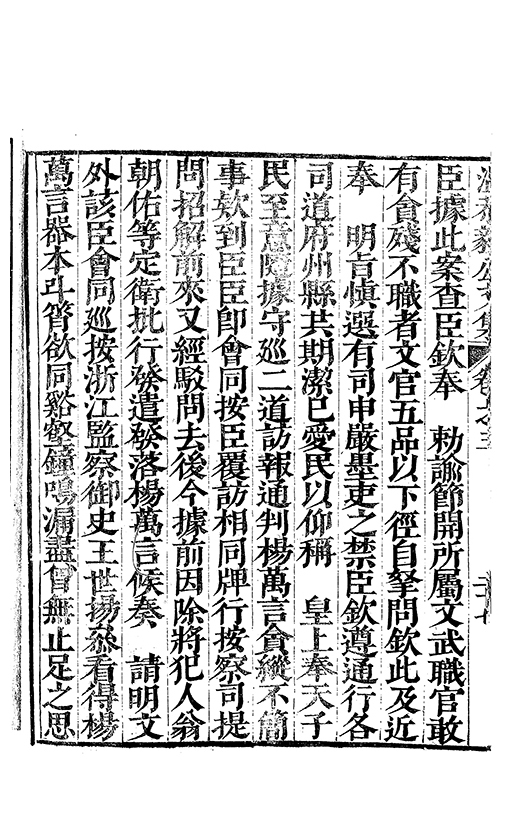 臣據此案查臣欽奉　勑諭節開所屬文武職官敢
有貪殘不職者文官五品以下徑自拏問欽此及近
奉　明旨慎選有司申嚴墨吏之禁臣欽遵通行各
司道府州縣共期潔己愛民以仰稱　皇上奉天子
民至意隨據守巡二道訪報通判楊萬言貪縱不簡
事欵到臣臣卽會同按臣覆訪相同牌行按察司提
問招解前來又經駁問去後今據前因除將犯人翁
朝佑等定衛批行發遣發落楊萬言候奏　請明文
外該臣會同巡按浙江監察御史王世揚叅看得楊
萬言器本斗筲欲同谿壑鐘鳴漏盡曾無止足之思